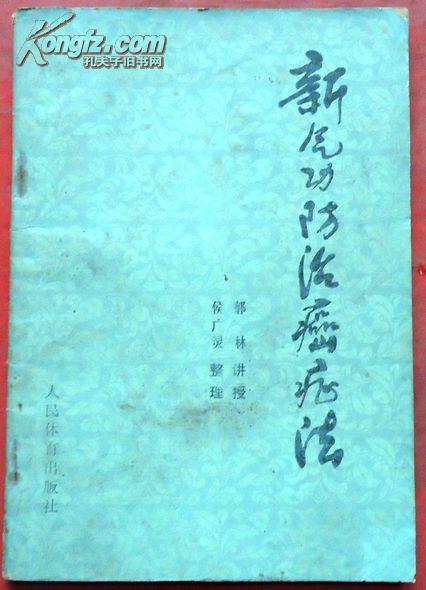 Kongfz.com
孔夫子旧书网
新气功防治癌症法
郭林讲授
侯广灵整理
人民体育出版社